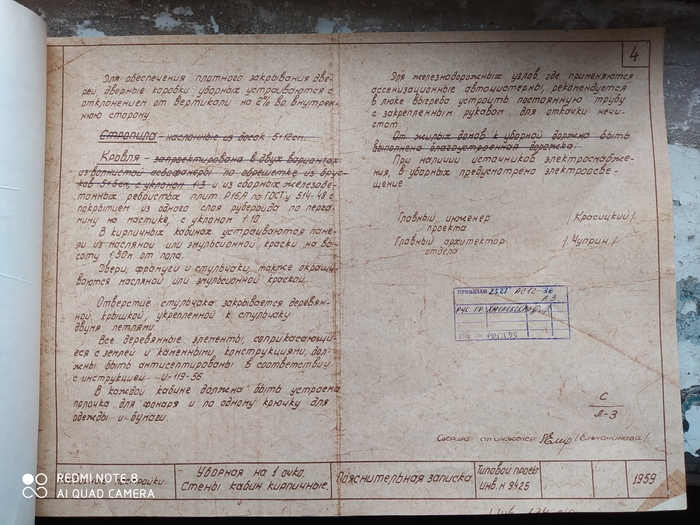 4
Для обеспечения плотного закрывания две-
рей дверные коробки уборных устраиваются с
отклонением от вертикали на 2% во внутрен-
нюю сторону
Стропила - наслонные из досок 5×12см.
Кровля - запроектирована в двух вариантах:
из волнистой асбофанеры по обрешетке из брус-
ков 5×5см, с уклоном 1:3 и из сборных железобе-
тонных ребристых плит Р16А по ГОСТу 514-48 с
покрытием из одного слоя рубероида по перга-
мину на мастике, с уклоном 1:10.
В кирпичных кабинах устраиваются пане-
ли из масляной или эмульсионной краски на вы-
соту 1,50м от пола.
Двери, фрамуги и стульчаки, также окраши-
ваются масляной или эмульсионной краской.
Отверстие стульчака закрывается деревян-
ной крышкой, укрепленной к стульчаку
двумя петлями.
Все деревянные элементы, соприкасающи-
еся с землей и каменными, конструкциями, дол-
жны быть антисептированы в соответствии
с инструкцией И-119-56
В каждой кабине должна быть устроена
полочка для фонаря и по одному крючку для
одежды и бумаги.
Для железнодорожных узлов, где применяются
ассенизационные автоцистерны, рекомендуется
в люке выгреба устроить постоянную трубу
с закрепленным рукавом для откачки нечи-
стот.
От жилых домов к уборной должна быть
выполнена благоустроенная дорожка.
При наличии источников электроснабже-
ния, в уборных предусмотрено электроосве-
щение.
Главный инженер проекта / Красицкий /
Главный архитектор отдела / Чуприн /
ПРИВЯЗАН 2521 АС12-36
Л.3
РУК. ГР.
С
Л-3
Сверила ст. инженер / Ельчанинова /
Уборная на 1 очко.
Стены кабин кирпичные.
Пояснительная записка.
Типовой проект
Инв. № 9425
1959
REDMI NOTE 8
AI QUAD CAMERA